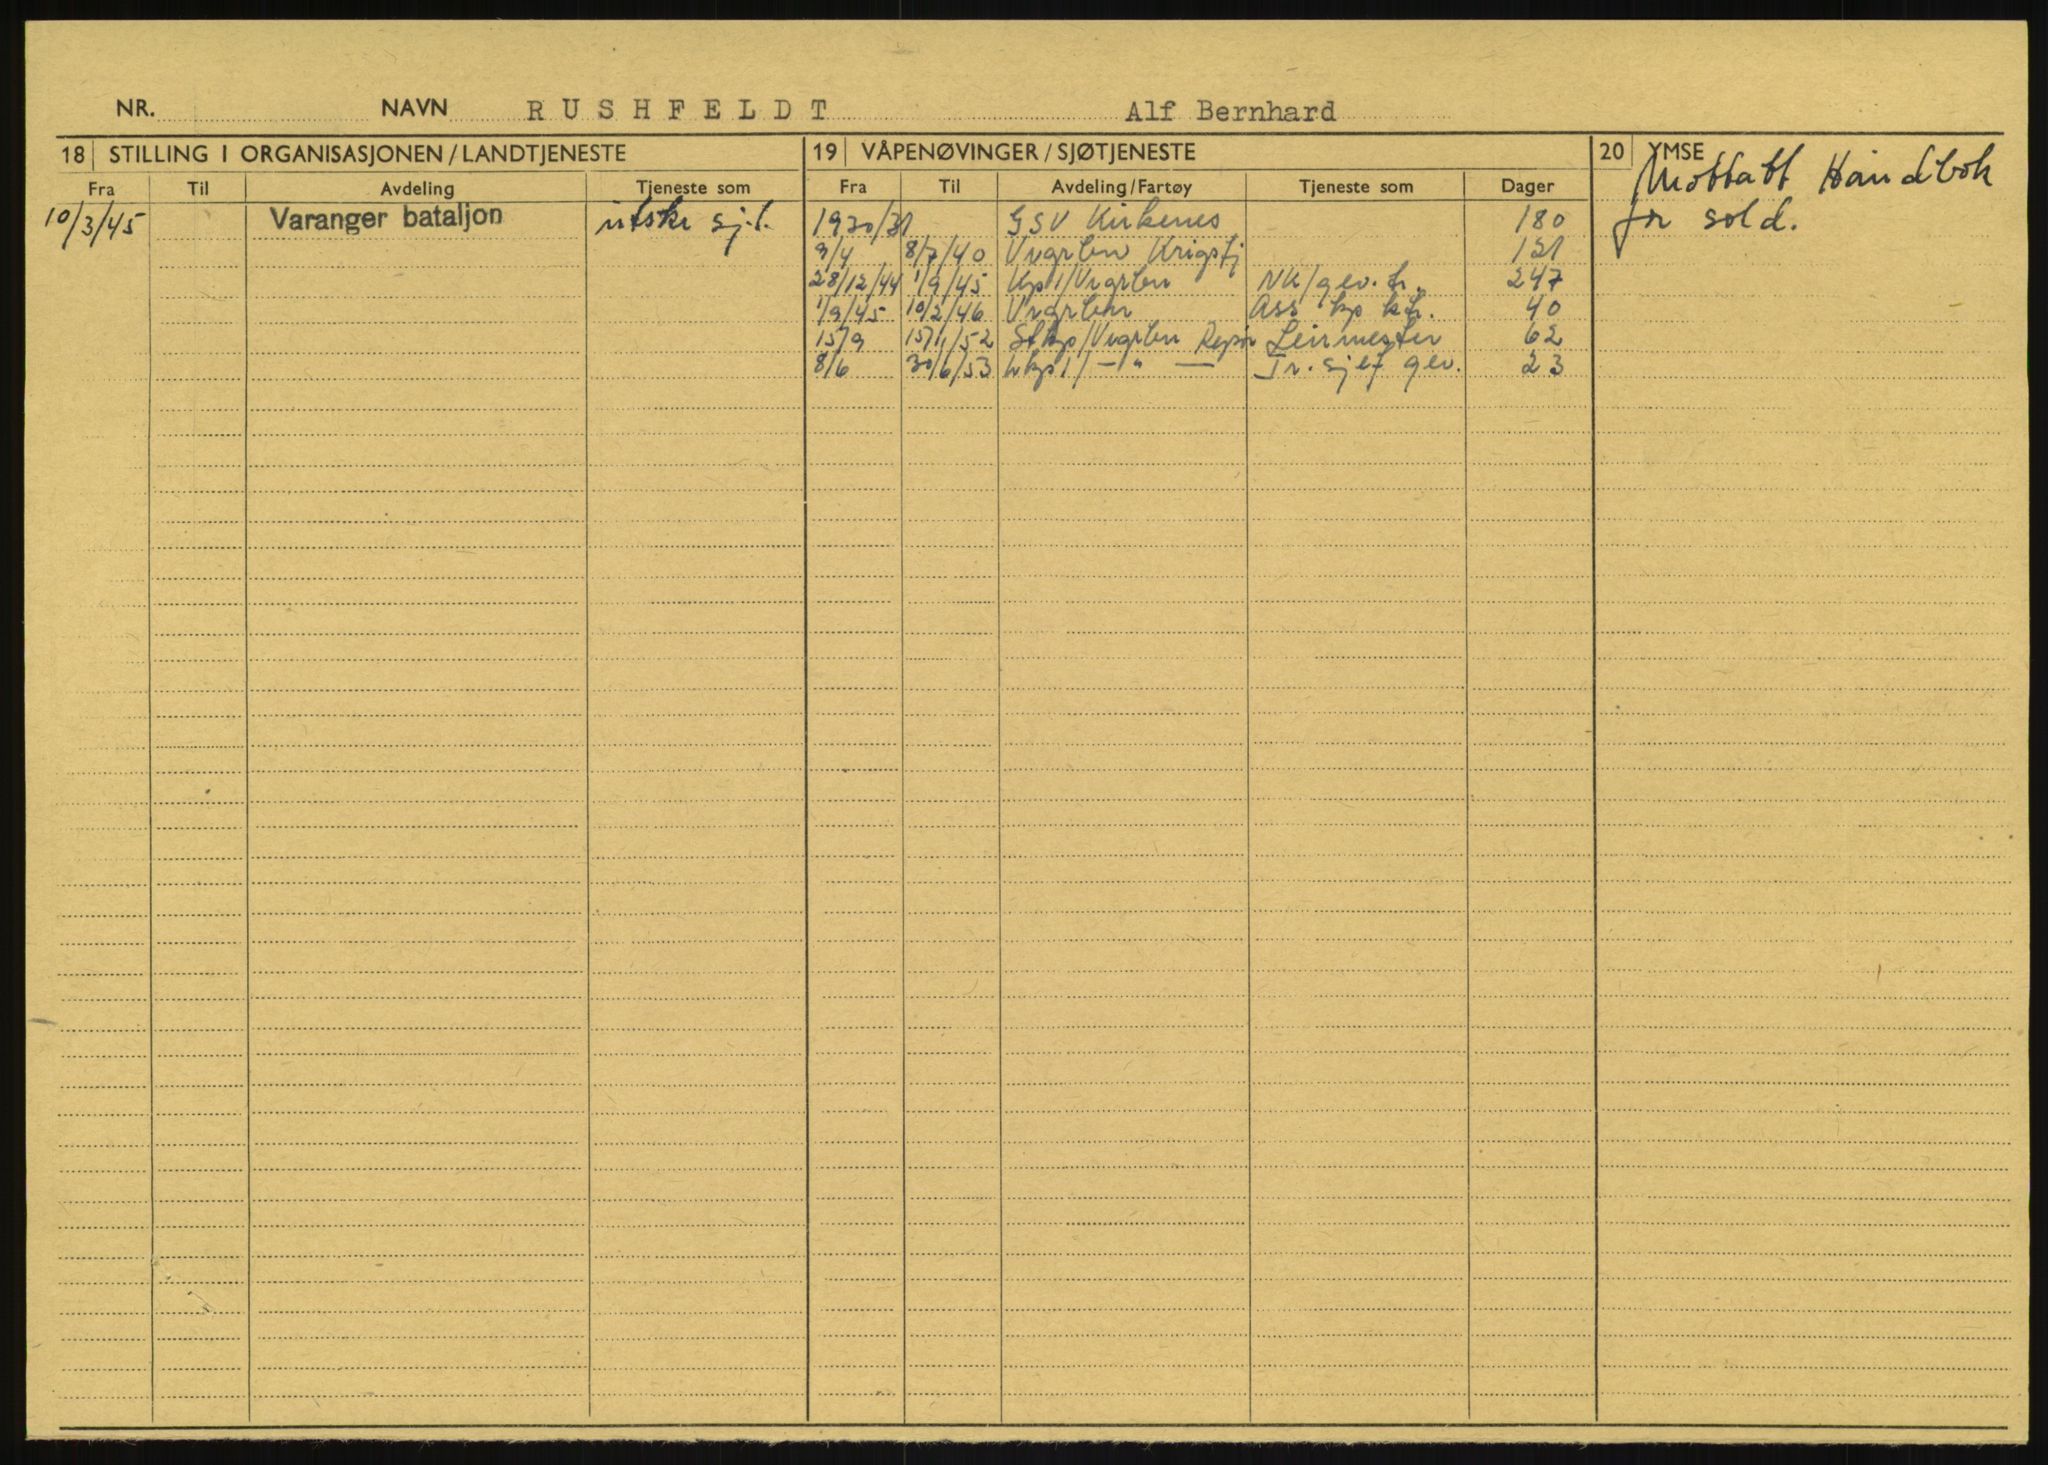 NR. NAVN RUSHFELDT Alf Bernhard
18 STILLING I ORGANISASJONEN/LANDTJENESTE 19 VÅPENØVINGER/SJØTJENESTE 20 YMSE
Fra Til Avdeling Tjeneste som Fra Til Avdeling/Fartøy Tjeneste som Dager
Mottatt Håndbok
10/3/45 Varanger bataljon utskr sj.l. 1930/31 GSV Kirkenes 180 for sold.
9/4 8/7/40 Vvgrbn Krigstj 121
28/12/44 1/9/45 Kp1/Vvgrbn NK/gev.tr. 247
1/9/45 10/2/46 Vvgrbn Ass kp ktr. 40
15/9 15/11/52 Stkp/Vvgrbn Repøv Leirmester 62
8/6 30/6/53 hkp1/ —"— Tr. sjef gev. 23